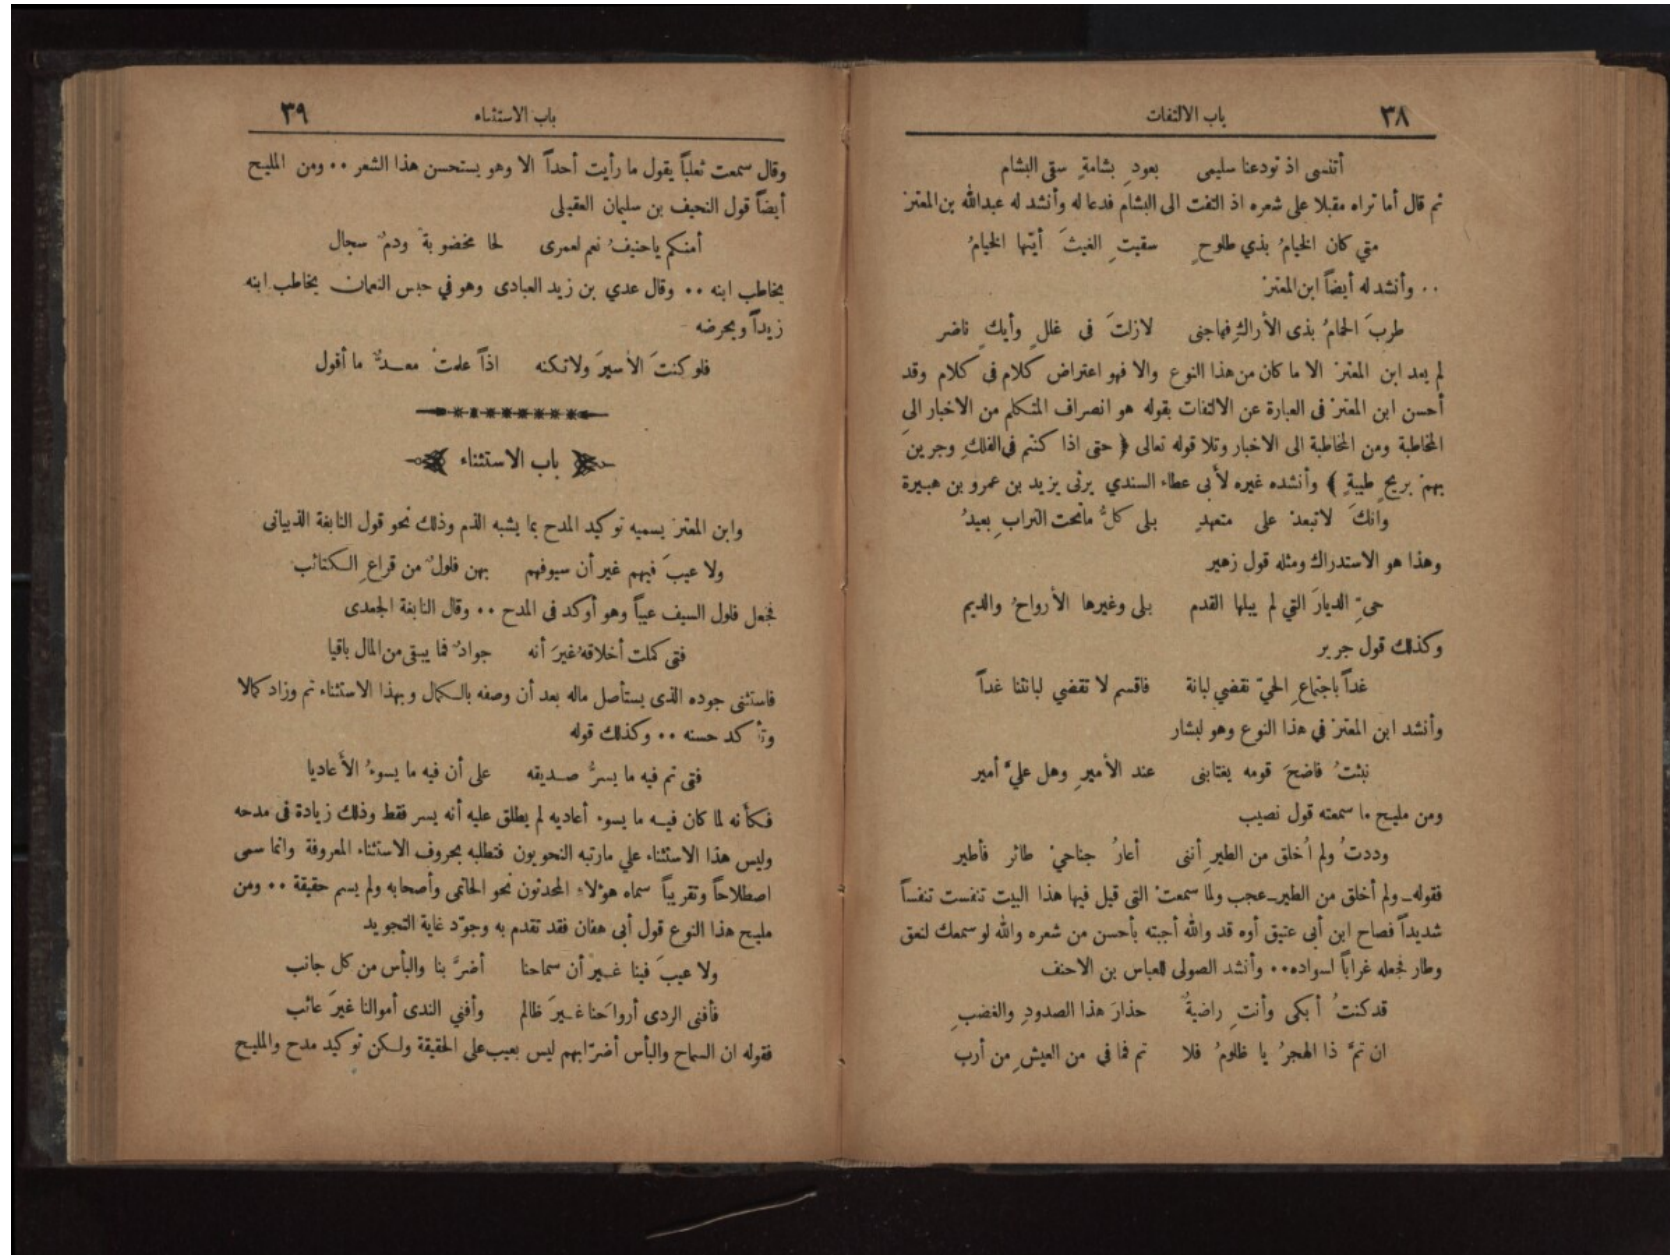 ٣٨
باب الالتفات
أتنسى اذ تودعنا سليمى بعودِ بشامةٍ سقى البشام
ثم قال أما تراه مقبلا على شعره اذ التفت الى البشام فدعا له وأنشد له عبدالله بن المعتز
متي كان الخيامُ بذي طلوحٍ سقيتِ الغيثَ أيتها الخيامُ
٠٠ وأنشد له أيضاً ابن المعتز
طربَ الحمامُ بذى الأراكِ فهاجنى لازلتَ فى غللٍ وأيكٍ ناضر
لم يعد ابن المعتز الا ما كان من هذا النوع والا فهو اعتراض كلام فى كلام وقد
أحسن ابن المعتز فى العبارة عن الالتفات بقوله هو انصراف المتكلم من الاخبار الى
المخاطبة ومن المخاطبة الى الاخبار وتلا قوله تعالى ﴿ حتى اذا كنتم في الفلكِ وجرينَ
بهمْ بريحٍ طيبةٍ ﴾ وأنشده غيره لأبى عطاء السندي يرثى يزيد بن عمرو بن هبيرة
وانكَ لاتبعدْ على متعهدٍ بلى كلُّ ماتحت الترابِ بعيدُ
وهذا هو الاستدراك ومثله قول زهير
حىِّ الديارَ التي لم يبلها القدم بلى وغيرها الأرواحُ والديم
وكذلك قول جرير
غداً باجتماعِ الحيّ نقضي لبانة فاقسم لا تقضي لبانتنا غداً
وأنشد ابن المعتز في هذا النوع وهو لبشار
نبئتُ فاضحَ قومه يغتابنى عند الأميرِ وهل عليَّ أمير
ومن مليح ما سمعته قول نصيب
وددتُ ولم اُخلق من الطيرِ أننى أعارُ جناحيْ طائر فأطير
فقوله ـ ولم أخلق من الطير ـ عجب ولما سمعتْ التى قيل فيها هذا البيت تنفست تنفساً
شديداً فصاح ابن أبى عتيق أوه قد والله أجبته بأحسن من شعره والله لو سمعك لنعق
وطار فجعله غراباً لسواده٠٠ وأنشد الصولى للعباس بن الاحنف
قد كنتُ أبكى وأنتِ راضيةٌ حذارَ هذا الصدودِ والغضبِ
ان تمَّ ذا الهجرُ يا ظلومُ فلا تم فما في من العيشِ من أرب
باب الاستثناء
٣٩
وقال سمعت ثعلباً يقول ما رأيت أحداً الا وهو يستحسن هذا الشعر ٠٠ ومن المليح
أيضاً قول النحيف بن سليمان العقيلى
أمنكم ياحنيفُ نعم لعمرى لحا مخضوبةٌ ودمٌ سجال
يخاطب ابنه ٠٠ وقال عدي بن زيد العبادى وهو في حبس النعمان يخاطب ابنه
زيداً ويحرضه
فلو كنتَ الأسيرَ ولاتكنه اذاً علمتْ معدٌّ ما أقول
باب الاستثناء
وابن المعتز يسميه توكيد المدح بما يشبه الذم وذلك نحو قول النابغة الذبيانى
ولا عيبَ فيهم غير أن سيوفهم بهن فلولٌ من قراعِ الكتائب
فجعل فلول السيف عيباً وهو أوكد فى المدح ٠٠ وقال النابغة الجعدى
فتى كملت أخلاقهُ غيرَ أنه جوادٌ فما يبقى من المال باقيا
فاستثنى جوده الذى يستأصل ماله بعد أن وصفه بالكمال وبهذا الاستثناء تم وزاد كمالا
وتأكد حسنه ٠٠ وكذلك قوله
فتى تم فيه ما يسرُّ صديقه على أن فيه ما يسوءُ الأعاديا
فكأنه لما كان فيه ما يسوء أعاديه لم يطلق عليه أنه يسر فقط وذلك زيادة فى مدحه
وليس هذا الاستثناء علي مارتبه النحويون فتطلبه بحروف الاستثناء المعروفة وانما سمى
اصطلاحاً وتقريباً سماه هؤلاء المحدثون نحو الحاتمى وأصحابه ولم يسم حقيقة ٠٠ ومن
مليح هذا النوع قول أبى هفان فقد تقدم به وجوّد غاية التجويد
ولا عيبَ فينا غير أن سماحنا أضرَّ بنا والبأس من كل جانب
فأفنى الردى أرواحَنا غيرَ ظالم وأفني الندى أموالنا غيرَ عائب
فقوله ان السماح والبأس أضرّابهم ليس بعيب على الحقيقة ولكن توكيد مدح والمليح